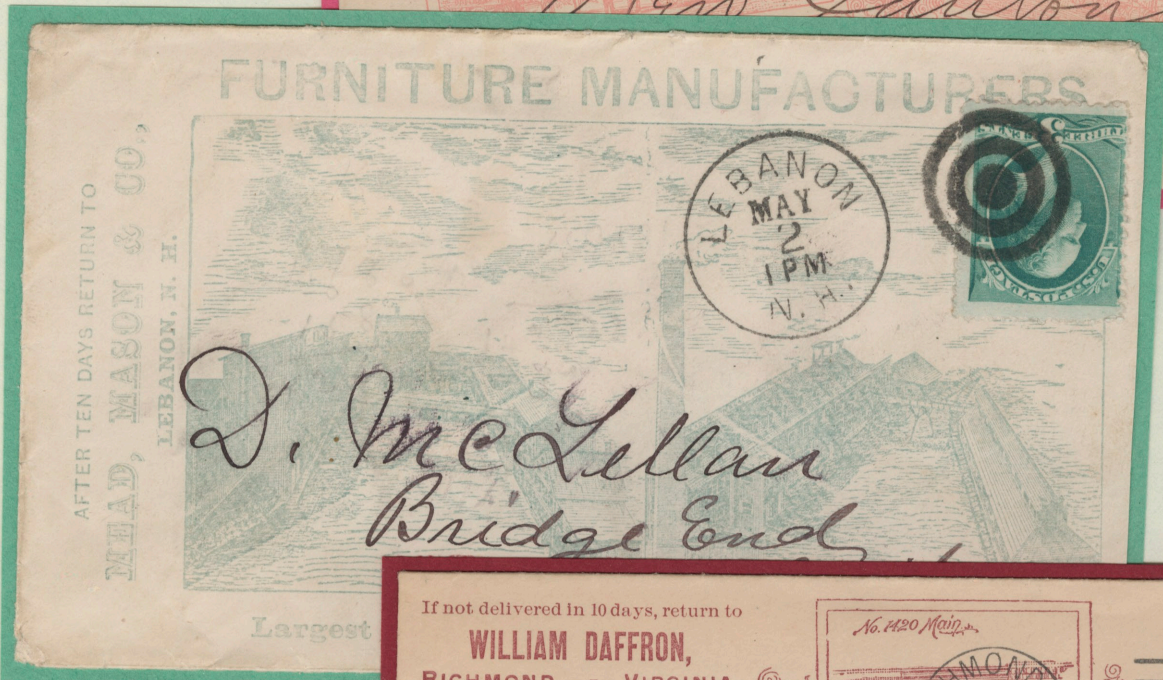 FURNITURE MANUFACTURERS
AFTER TEN DAYS RETURN TO
MEAD, MASON & CO.,
LEBANON, N. H.
LEBANON
MAY
2
1 PM
N. H.
D. McLellan
Bridge End
Largest
If not delivered in 10 days, return to
WILLIAM DAFFRON,
RICHMOND VIRGINIA
No. 1420 Main